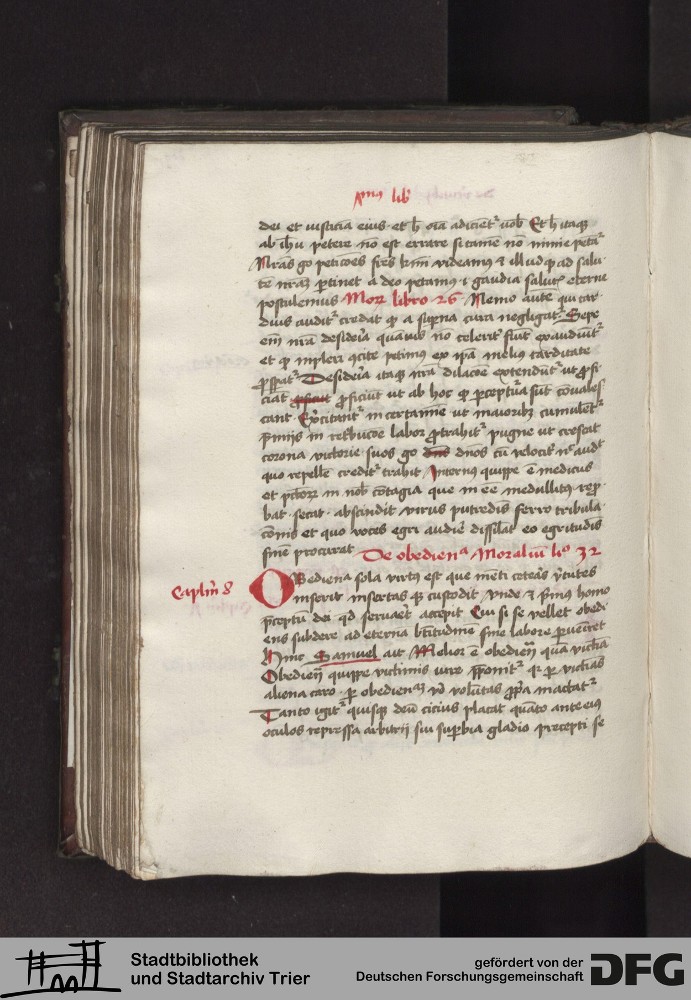 pmus lib
dei et iusticia eius · et h oia adicient vob Et h itaqz
ab ihu petere no est errare si tamen no nimie peta
Nras go peticoes fres kmi videamus ⁊ ill ud qd ad salu
te nram ptinet a deo petamus ⁊ gaudia salut eterne
postulemus Mor libro 26 Nemo aute qui tar
dius audit credat qd a supna cura negligat Sepe
em nra desideria quamuis no celerit fiunt exaudiunt
et qd impleri cite petimus ex ipa melius tarditate
prospat Desideria itaqz nra dilacoe extendunt ut profi
ciat proficiut ut ab hoc qd percepturi sut convales
cant Excitant in certamine ut maioribz cumulent
pmijs in retbucoe labor protrahit pugne ut crescat
corona victorie suos go dns cu velocit no audit
quo repelle credit trahit Internus quippe e medicus
et pctorz in nob contagia que in ee medullitus repro
bat · secat · abscindit virus putredis ferro tribula
conis et quo voces egri audire dissilat eo egritudis
fine procurat De obediena Moraliu lio 32
Caplm 8
Obediena sola virtus est que menti ceteras vtutes
inserit insertas qz custodit vnde ⁊ pmus homo
pceptu dei qd servaret accepit Cui si se vellet obedi
ens subdere ad eterna btitudine sine labore pueniret
Hinc Samuel ait Melior e obediena qua victia
Obediena quippe victimis iure pponit qr p victias
aliena caro · p obediena vo voluntas ppa mactat
Tanto igit quisqz deu cicius placat quato ante eius
oculos repressa arbitrij sui supbia gladio precepti se
Stadtbibliothek
und Stadtarchiv Trier
gefördert von der
Deutschen Forschungsgemeinschaft
DFG